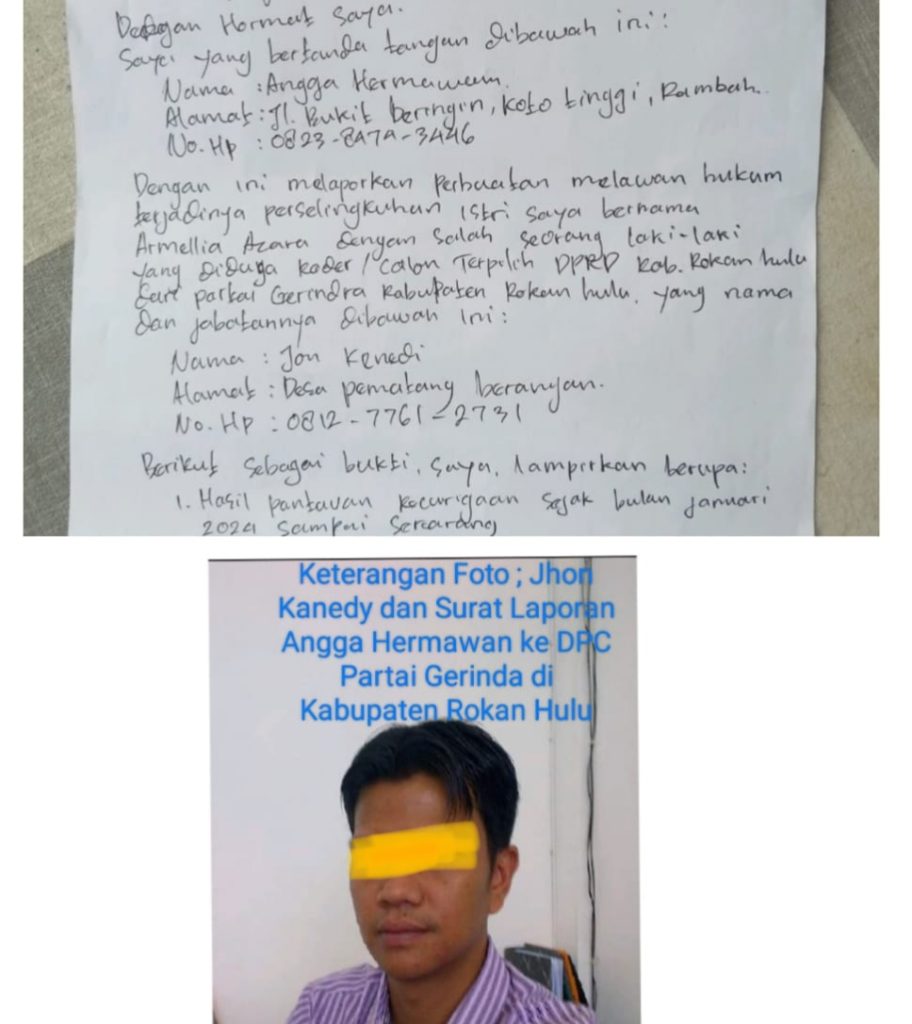 Dengan Hormat Saya.
Saya yang bertanda tangan dibawah ini:
Nama : Angga Hermawan.
Alamat : Jl. Bukit beringin, Koto tinggi, Rambah.
No. Hp : 0823-8474-3446
Dengan ini melaporkan Perbuatan melawan hukum
terjadinya perselingkuhan Istri saya bernama
Armellia Azara dengan Salah seorang laki-laki
yang diduga Kader / Calon Terpilih DPRD Kab. Rokan hulu
Dari partai Gerindra Kabupaten Rokan hulu, yang nama
dan jabatannya dibawah ini:
Nama : Jon Kenedi
Alamat : Desa pematang berangan.
No. Hp : 0812-7761-2731
Berikut sebagai bukti, saya, lampirkan berupa:
1. Hasil pantauan kecurigaan sejak bulan januari
2024 sampai Sekarang
Keterangan Foto ; Jhon
Kanedy dan Surat Laporan
Angga Hermawan ke DPC
Partai Gerinda di
Kabupaten Rokan Hulu